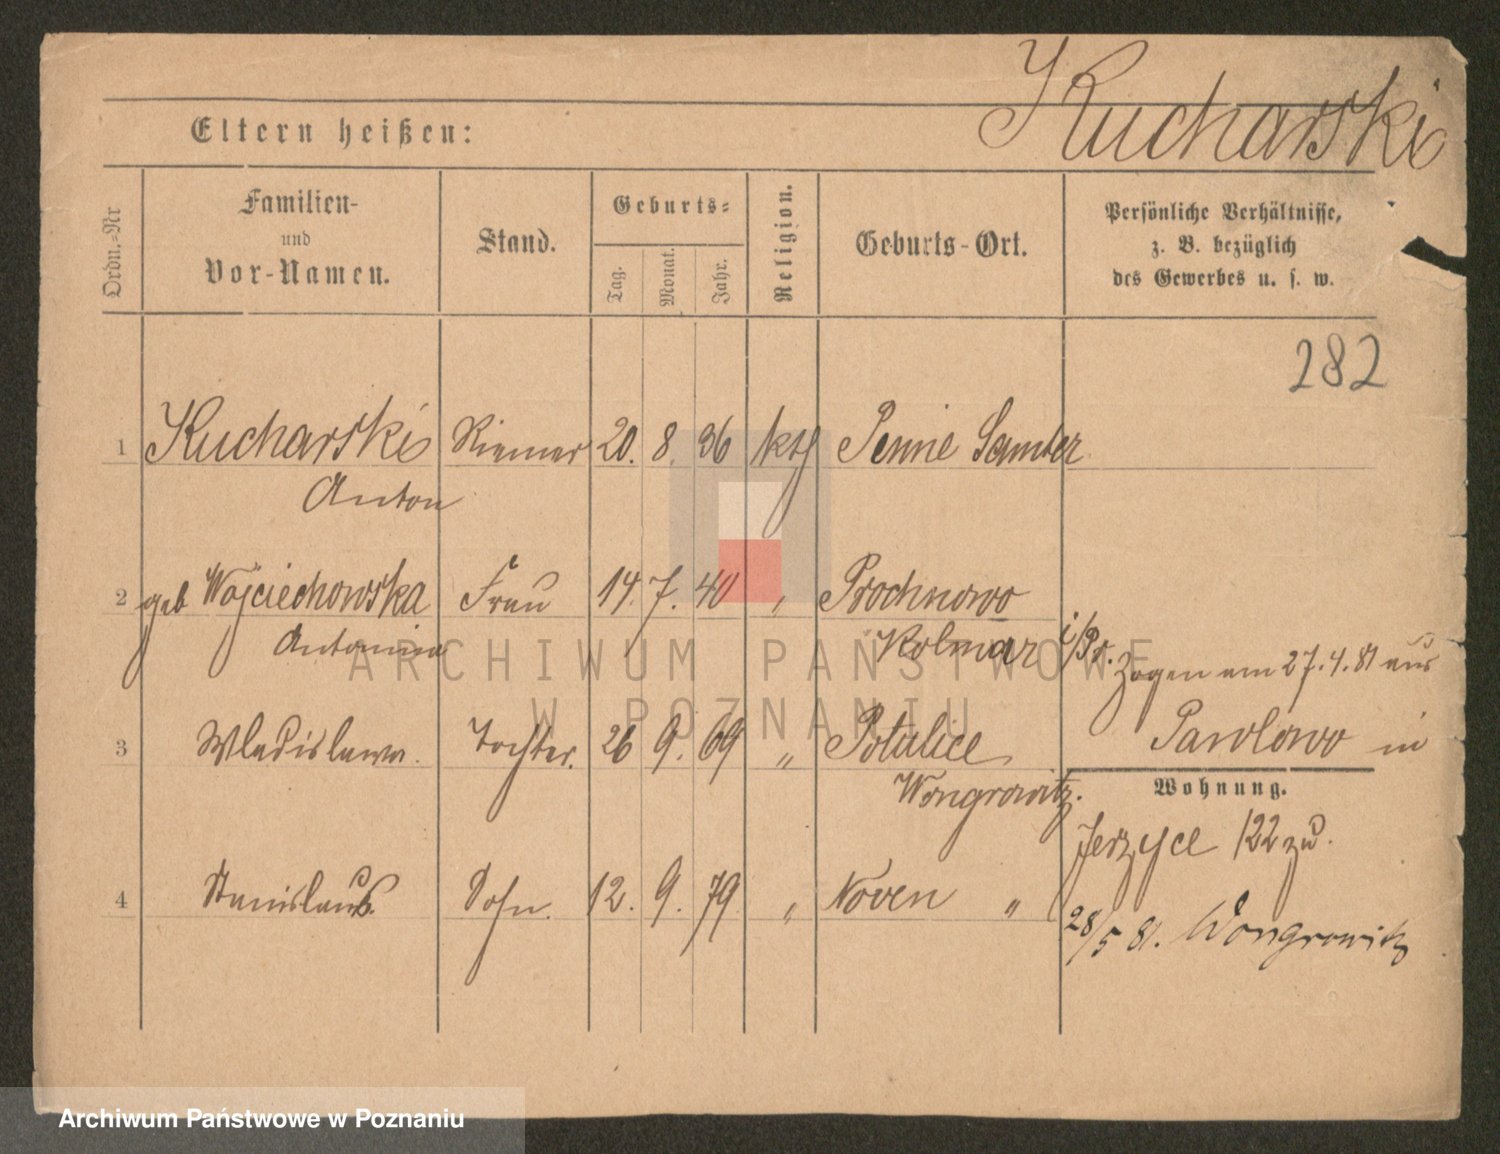 Kucharski
Eltern heißen:
Ordn.-Nr
Familien-
und
Vor-Namen.
Stand.
Geburts-
Tag.
Monat.
Jahr.
Religion.
Geburts-Ort.
Persönliche Verhältnisse,
z. B. bezüglich
des Gewerbes u. s. w.
282
1 Kucharski Riemer 20. 8. 36 kth Samter
Anton
2 geb Wojciechowska Frau 14. 7. 40 " Prochnowo
Antonina Kolmar i/Pr.
Zogen am 27.4.81 aus
3 Wladislawa. Tochter. 26 9. 69 " Potulice Pawlowo in
Wongrowitz.
Wohnung.
Jerzyce 122 zu.
4 Stanislaus. Sohn. 12. 9. 79 " "
28/5 81. Wongrowitz
ARCHIWUM PAŃSTWOWE
W POZNANIU
Archiwum Państwowe w Poznaniu